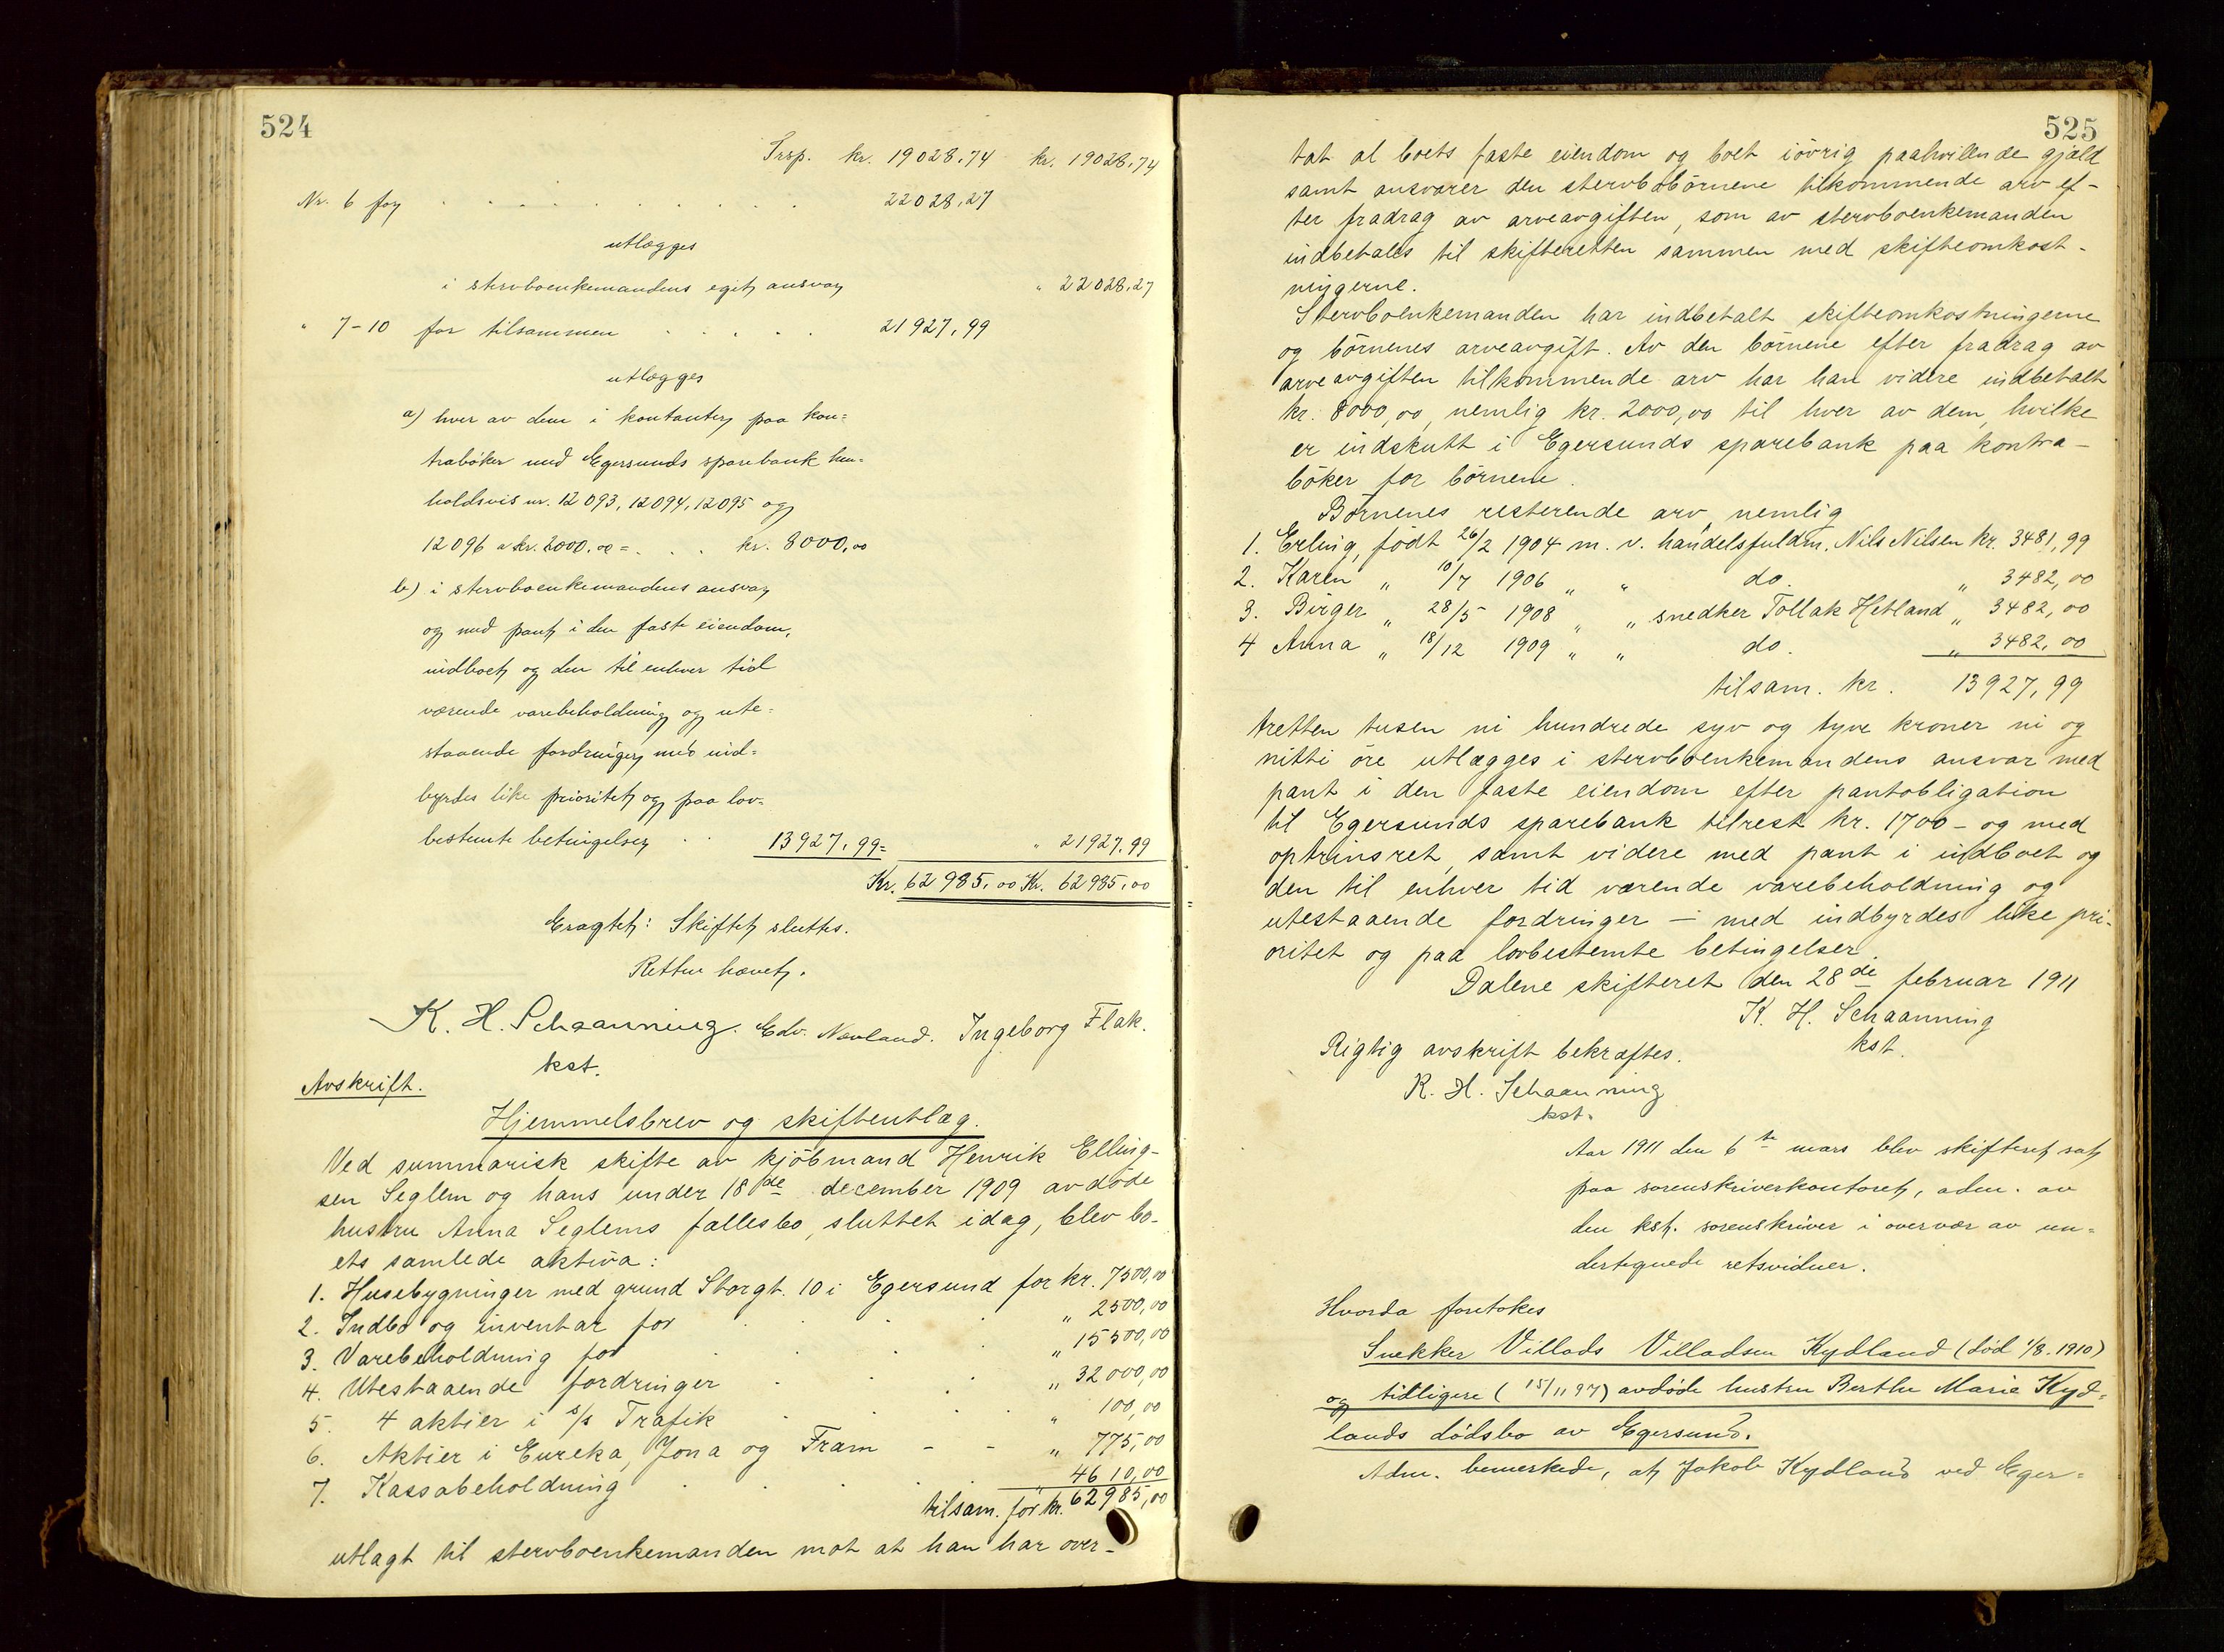 524
Trsp. kr. 19028,74 kr. 19028,74
Nr. 6 for . . . . . . . . . 22028,27
utlægges
i stervboenkemandens eget ansvar " 22028,27
" 7-10 for tilsammen . . . . . 21927,99
utlægges
a) hver av dem i kontanter paa kon=
trabøker med Egersunds sparebank hen=
holdsvis nr. 12093, 12094, 12095 og
12096 a kr. 2000,00 = . . . kr. 8000,00
b) i stervboenkemandens ansvar
og med pant i den faste eiendom,
indboet og den til enhver tid
værende varebeholdning og ute=
staaende fordringer med ind=
byrdes like prioritet og paa lov=
bestemte betingelser . . 13927,99= " 21927,99
Kr. 62985,00 Kr. 62985,00
Eragtet: Skiftet sluttes.
Retten hævet.
K. H. Schaanning. Edv. Nevland. Ingeborg Flak.
kst.
Avskrift.
Hjemmelsbrev og skifteutlæg.
Ved summarisk skifte av kjöbmand Henrik Elling-
sen Seglem og hans under 18de december 1909 avdöde
hustru Anna Seglems fællesbo, sluttet idag, blev bo-
ets samlede aktiva:
1. Husebygninger med grund Storgt. 10 i Egersund for kr. 7500,00
2. Indbo og inventar for . . . " 2500,00
3. Varebeholdning for . . . " 15500,00
4. Utestaaende fordringer . . . " 32000,00
5. 4 aktier i s/s Trafik . . . . " 100,00
6. Aktier i Eureka, Jona og Fram - - " 775,00
7. Kassabeholdning . . . . " 4610,00
tilsam. for kr. 62985,00
utlagt til stervboenkemanden mot at han har over-
525
tat al boets faste eiendom og boet iövrig paahvilende gjæld
samt ansvarer den stervbobörnene tilkommende arv ef-
ter fradrag av arveavgiften, som av stervboenkemanden
indbetales til skifteretten sammen med skifteomkost-
ningerne.
Stervboenkemanden har indbetalt skifteomkostningerne
og börnenes arveavgift. Av den börnene efter fradrag av
arveavgiften tilkommende arv har han videre indbetalt
kr. 8000,00, nemlig kr. 2000,00 til hver av dem, hvilke
er indskutt i Egersunds sparebank paa kontra-
böker for börnene.
Börnenes resterende arv, nemlig
1. Erling, födt 26/2 1904 m. v. handelsfuldm. Nils Nilsen kr. 3481,99
2. Karen " 10/7 1906 " " do. " 3482,00
3. Birger " 28/5 1908 " " snedker Tollak Hetland " 3482,00
4 Anna " 18/12 1909 " " do. " 3482,00
tilsam. kr. 13927,99
tretten tusen ni hundrede syv og tyve kroner ni og
nitti öre utlægges i stervboenkemandens ansvar med
pant i den faste eiendom efter pantobligation
til Egersunds sparebank tilrest kr. 1700 - og med
optrinsret, samt videre med pant i indboet og
den til enhver tid værende varebeholdning og
utestaaende fordringer - med indbyrdes like pri-
oritet og paa lovbestemte betingelser.
Dalene skifteret den 28de februar 1911
K. H. Schaanning
kst.
Rigtig avskrift bekræftes.
K. H. Schaanning
kst.
Aar 1911 den 6te mars blev skifteret sat
paa sorenskriverkontoret, adm. av
den kst. sorenskriver i overvær av un=
dertegnede retsvidner.
Hvorda foretokes
Snekker Villads Villadsen Kydland (död 1/8. 1910)
og tidligere (15/11 97) avdöde hustru Berthe Marie Kyd=
lands dödsbo av Egersund.
Adm. bemerkede, at Jakob Kydland ved Eger=